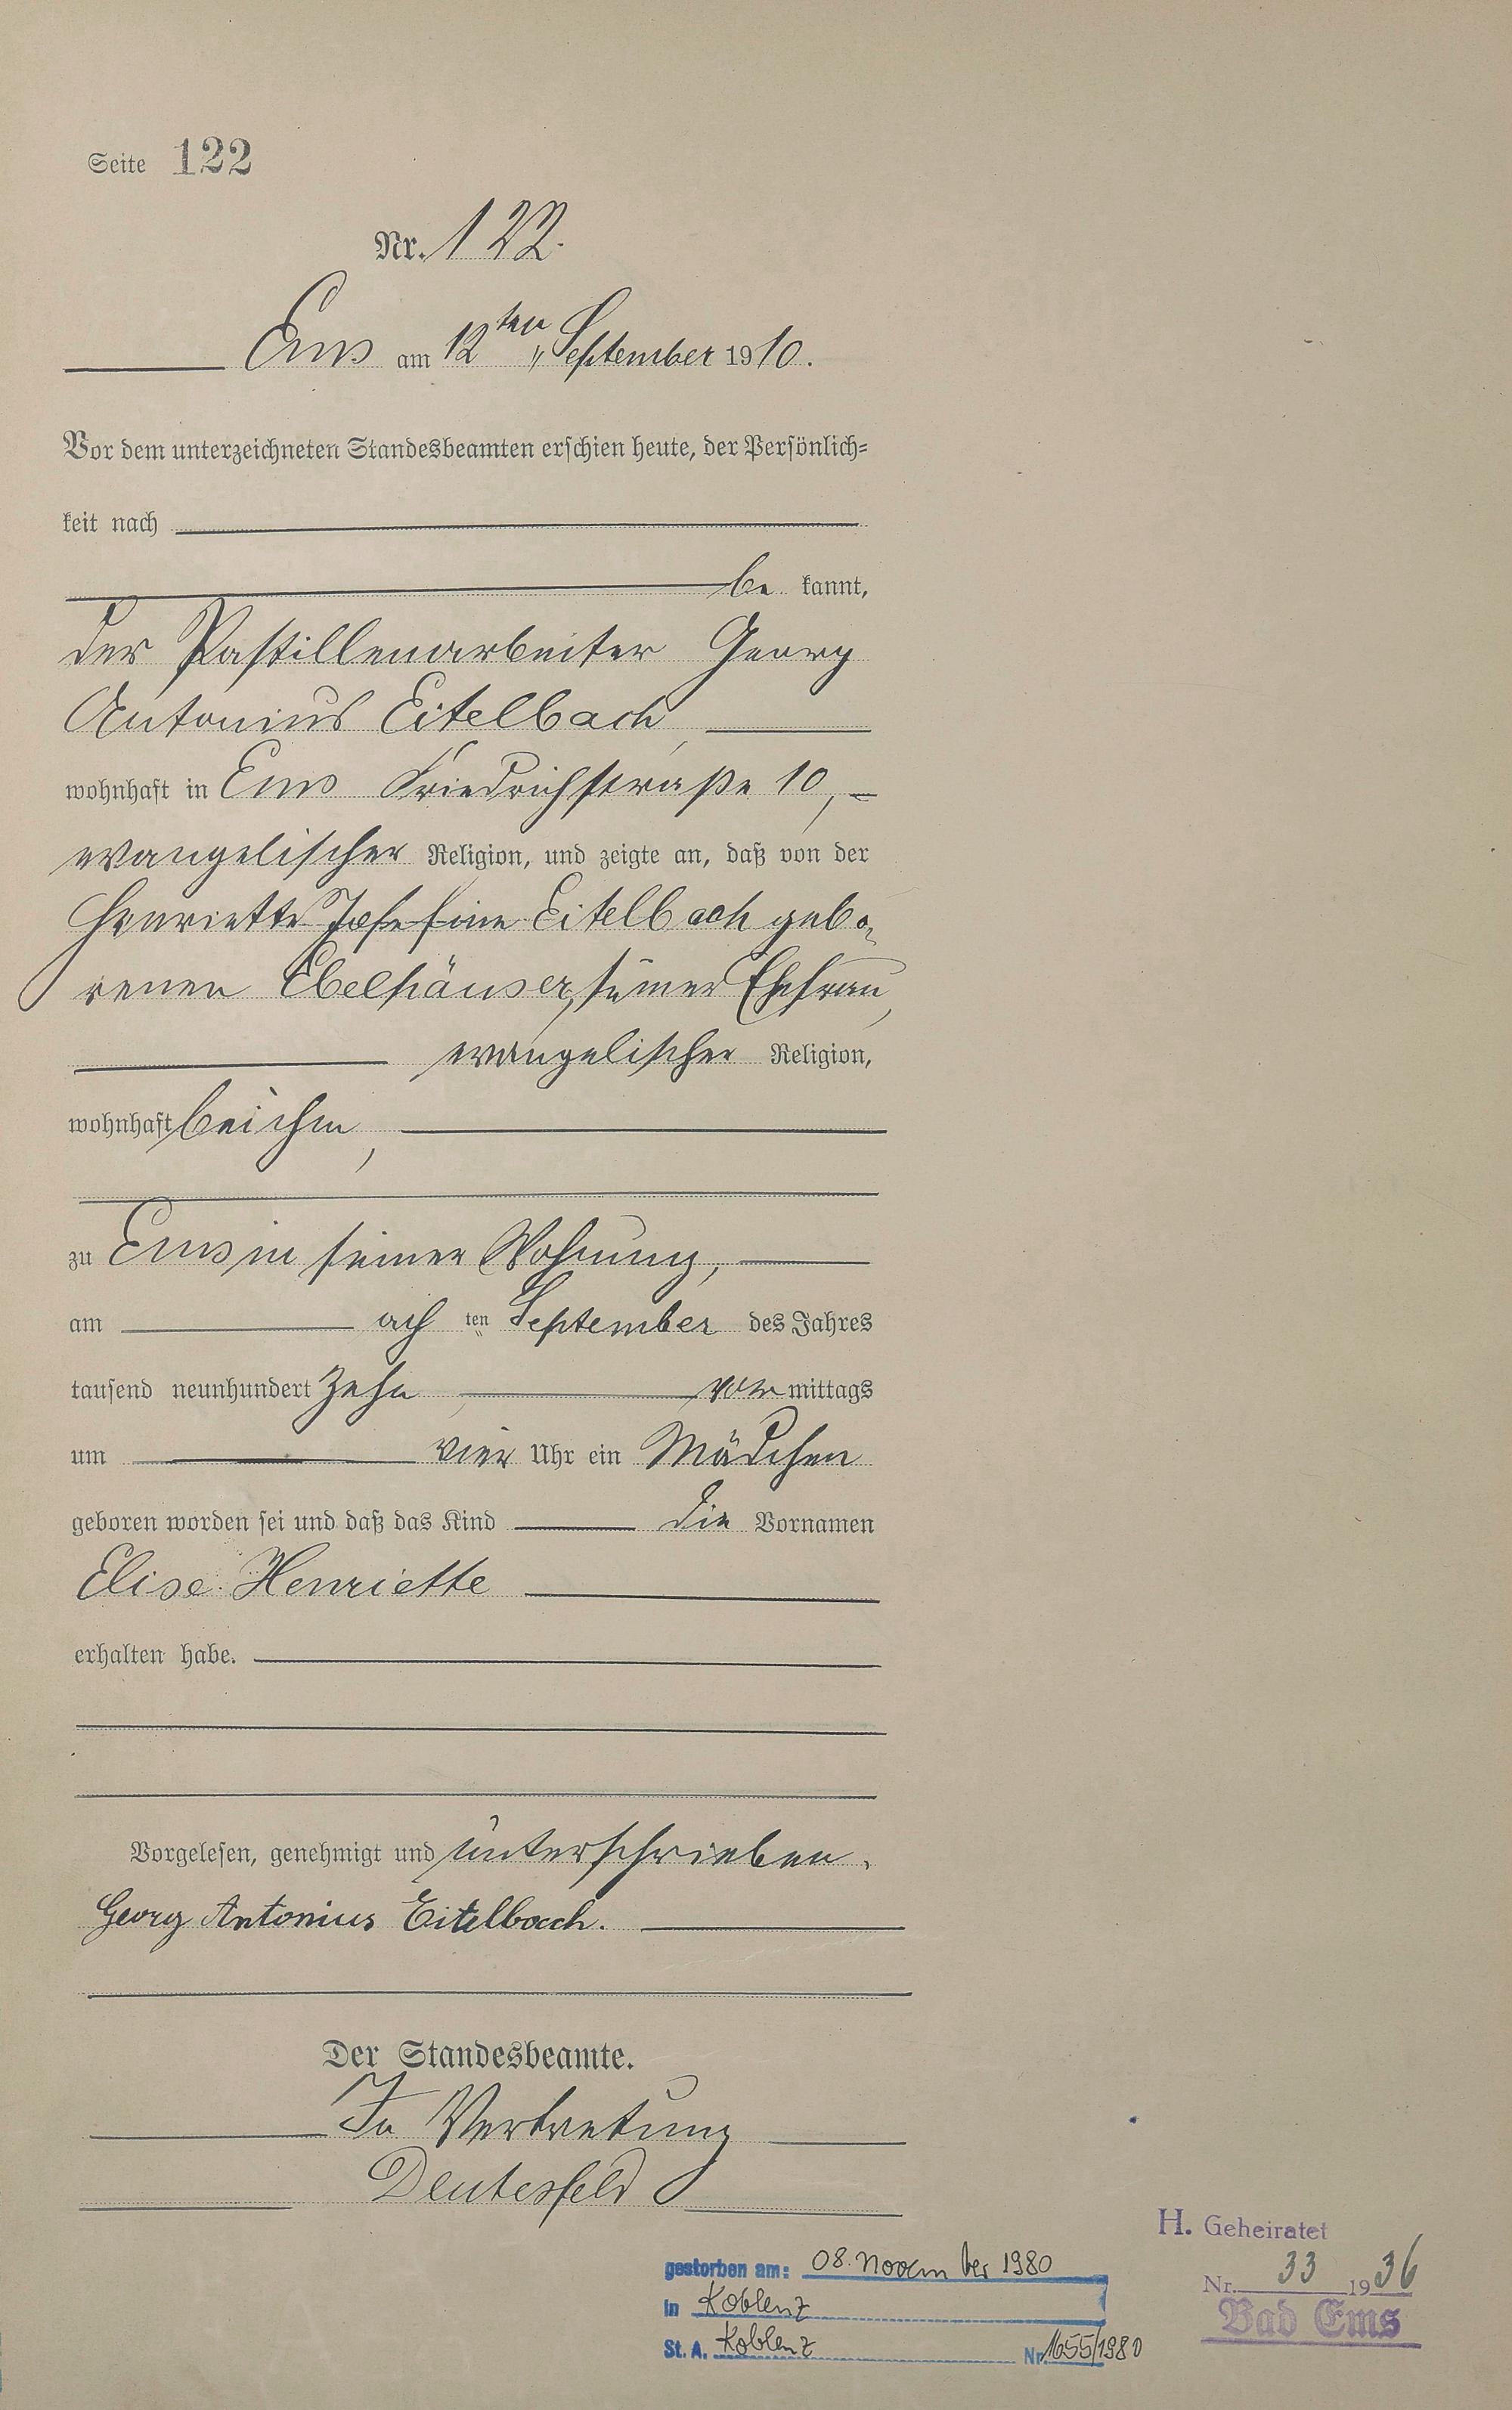 Seite 122
Nr. 122.
Ems am 12ten September 1910.
Vor dem unterzeichneten Standesbeamten erschien heute, der Persönlich-
keit nach
be kannt,
der Pastillenarbeiter Georg
Antonius Eitelbach
wohnhaft in Ems Friedrichstraße 10,
evangelischer Religion, und zeigte an, daß von der
Henriette Josefine Eitelbach gebo-
renen Ebelhäuser, seiner Ehefrau,
evangelischer Religion,
wohnhaft bei ihm,
zu Ems in seiner Wohnung,
am ach ten September des Jahres
tausend neunhundert zehn vor mittags
um vier Uhr ein Mädchen
geboren worden sei und daß das Kind die Vornamen
Elise Henriette
erhalten habe.
Vorgelesen, genehmigt und unterschrieben.
Georg Antonius Eitelbach.
Der Standesbeamte.
In Vertretung
Deutesfeld
gestorben am: 08. November 1980
in Koblenz
St. A. Koblenz Nr. 1655/1980
H. Geheiratet
Nr. 33 1936
Bad Ems